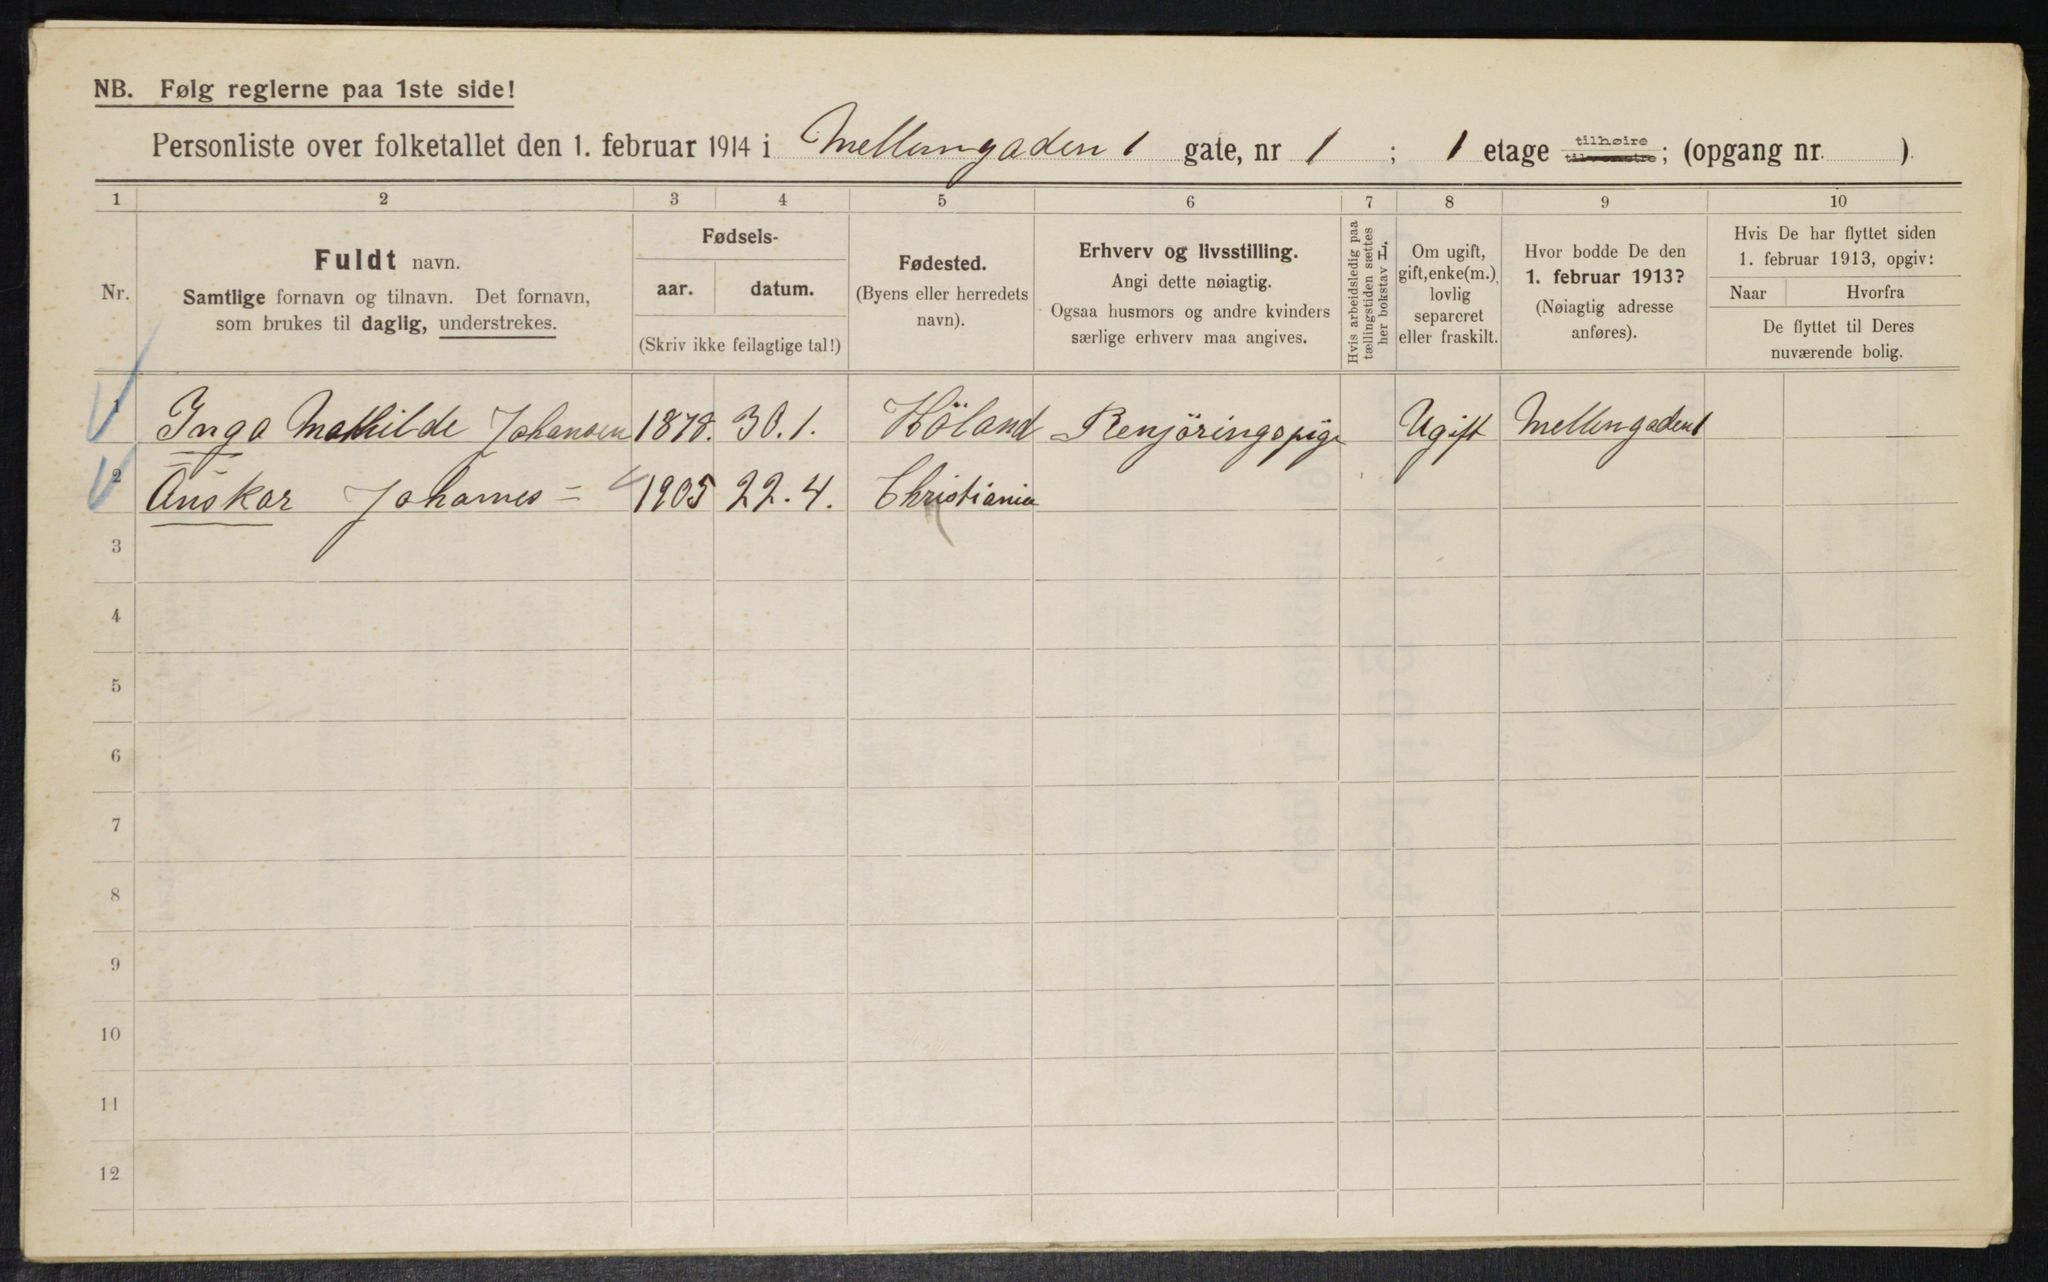 NB. Følg reglerne paa 1ste side!
Personliste over folketallet den 1. februar 1914 i Mellemgaden 1 gate, nr 1 ; 1 etage tilhøire tilvenstre; (opgang nr. )
1 2 3 4 5 6 7 8 9 10
Nr.
Fuldt navn.
Samtlige fornavn og tilnavn. Det fornavn,
som brukes til daglig, understrekes.
Fødsels-
aar. datum.
(Skriv ikke feilagtige tal!)
Fødested.
(Byens eller herredets
navn).
Erhverv og livsstilling.
Angi dette nøiagtig.
Ogsaa husmors og andre kvinders
særlige erhverv maa angives.
Hvis arbeidsledig paa
tællingstiden sættes
her bokstav L.
Om ugift,
gift, enke(m.),
lovlig
separeret
eller fraskilt.
Hvor bodde De den
1. februar 1913?
(Nøiagtig adresse
anføres).
Hvis De har flyttet siden
1. februar 1913, opgiv:
Naar Hvorfra
De flyttet til Deres
nuværende bolig.
1 Inga Mathilde Johansen 1878. 30.1. Höland Renjöringspige Ugift Mellemgaden 1
2 Anskar Johannes = 1905 22.4. Christiania
3
4
5
6
7
8
9
10
11
12